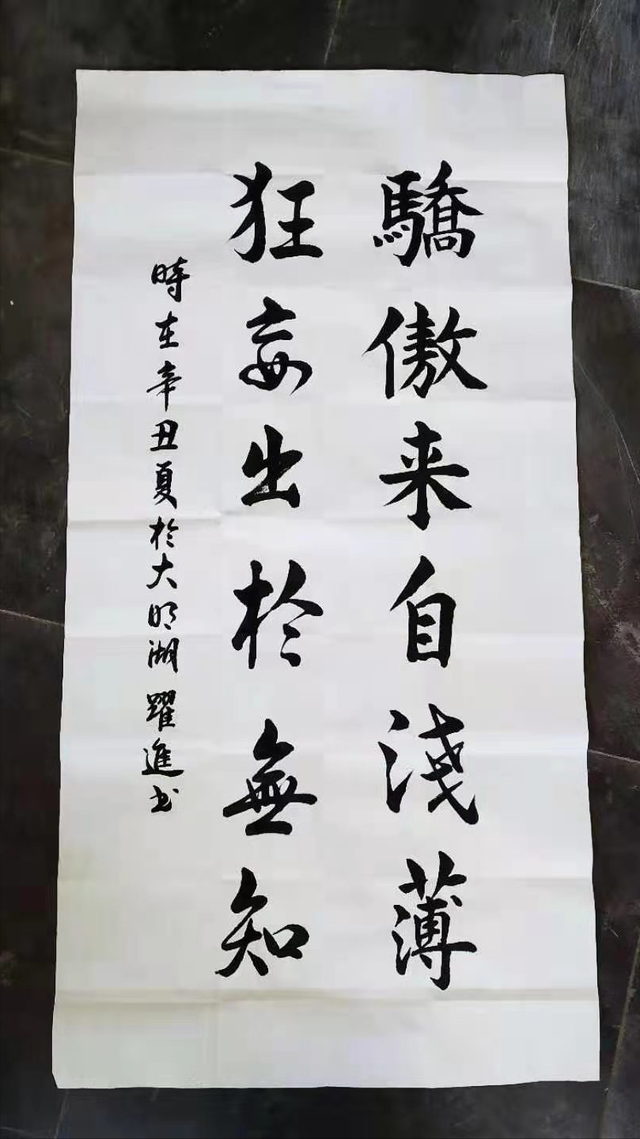 驕傲来自淺薄
狂妄出於無知
時在辛丑夏於大明湖躍進书